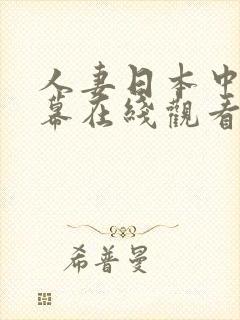 人妻日本中
幕在綫觀看
希普曼